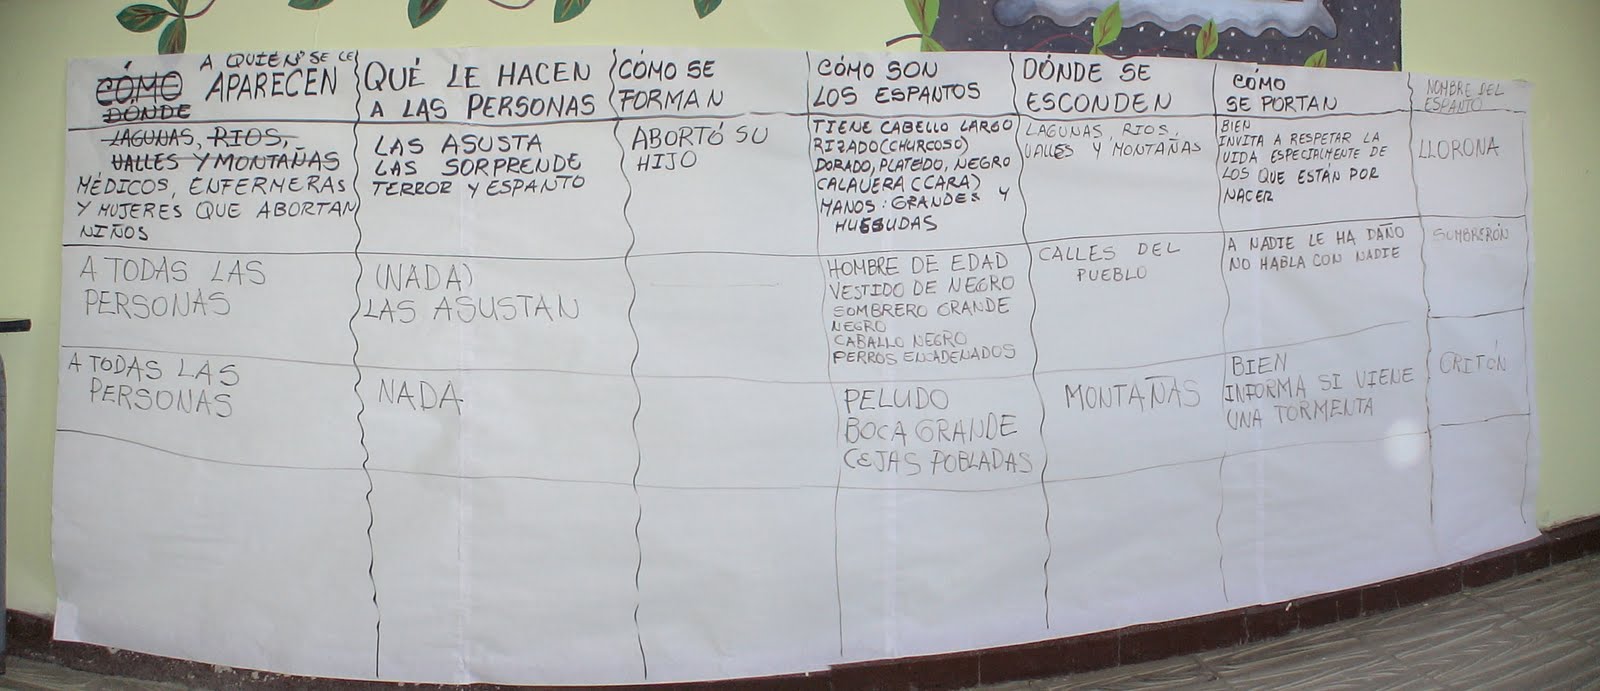 A QUIEN SE LE
CÓMO APARECEN
DÓNDE
QUÉ LE HACEN
A LAS PERSONAS
CÓMO SE
FORMAN
CÓMO SON
LOS ESPANTOS
DÓNDE SE
ESCONDEN
CÓMO
SE PORTAN
NOMBRE DEL
ESPANTO
LAGUNAS, RIOS,
VALLES Y MONTAÑAS
MÉDICOS, ENFERMERAS
Y MUJERES QUE ABORTAN
NIÑOS
LAS ASUSTA
LAS SORPRENDE
TERROR Y ESPANTO
ABORTÓ SU
HIJO
TIENE CABELLO LARGO
RIZADO (CHURCOSO)
DORADO, PLATEDO, NEGRO
CALAVERA (CARA)
MANOS: GRANDES Y
HUESUDAS
LAGUNAS, RIOS,
VALLES Y MONTAÑAS
BIEN
INVITA A RESPETAR LA
VIDA ESPECIALMENTE DE
LOS QUE ESTÁN POR
NACER
LLORONA
A TODAS LAS
PERSONAS
(NADA)
LAS ASUSTAN
HOMBRE DE EDAD
VESTIDO DE NEGRO
SOMBRERO GRANDE
NEGRO
CABALLO NEGRO
PERROS ENCADENADOS
CALLES DEL
PUEBLO
A NADIE LE HA DAÑO
NO HABLA CON NADIE
SOMBRERÓN
A TODAS LAS
PERSONAS
NADA
PELUDO
BOCA GRANDE
CEJAS POBLADAS
MONTAÑAS
BIEN
INFORMA SI VIENE
UNA TORMENTA
GRITÓN